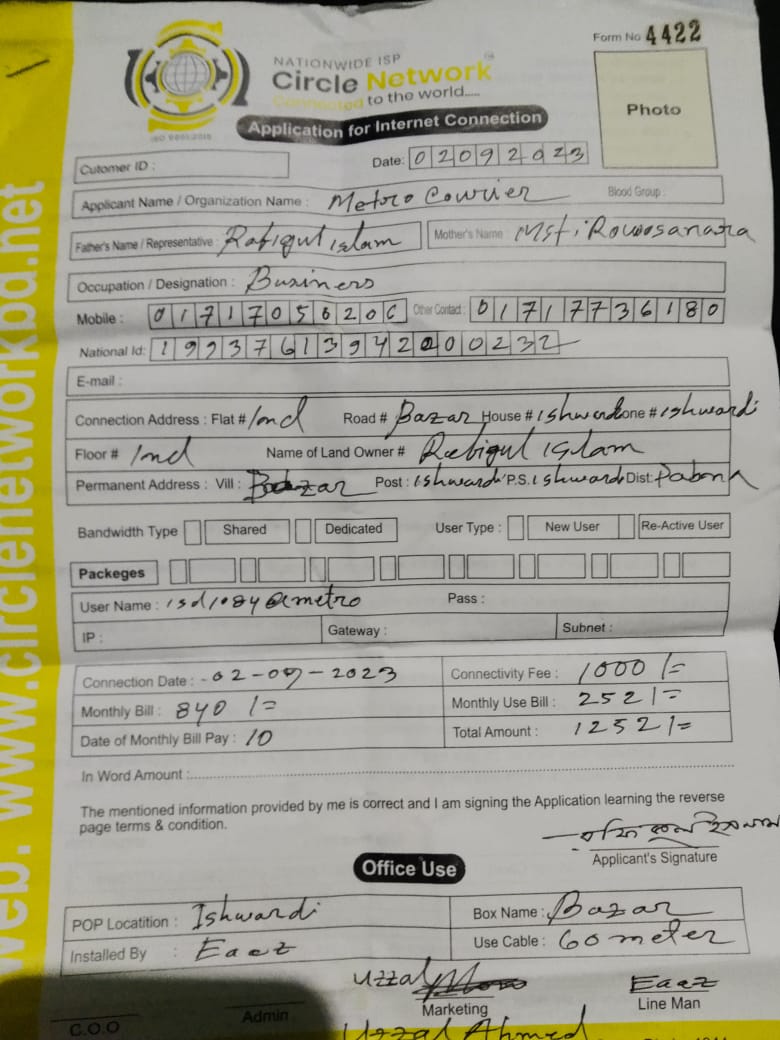 Form No 4422
NATIONWIDE ISP
Circle Network
Connected to the world.....
ISO 9001:2015
Application for Internet Connection
Photo
Cutomer ID :
Date: 02092023
Applicant Name / Organization Name : Metro Courier Blood Group :
Father's Name / Representative : Rafiqul islam Mother's Name : Mst:
Occupation / Designation : Business
Mobile : 0171705 Other Contact : 01717736180
National Id: 19937613942000232
E-mail :
Connection Address : Flat # Road # Bazar House # ishwardi one # ishwardi
Floor # Name of Land Owner # Rafiqul islam
Permanent Address : Vill : Bazar Post : ishwardi P.S. ishwardi Dist: Pabna
Bandwidth Type Shared Dedicated User Type : New User Re-Active User
Packeges
User Name : isd1084@metro Pass :
IP : Gateway : Subnet :
Connection Date : - 02-09-2023 Connectivity Fee : 1000/=
Monthly Bill : 840/= Monthly Use Bill : 252/=
Date of Monthly Bill Pay : 10 Total Amount : 1252/=
In Word Amount :
The mentioned information provided by me is correct and I am signing the Application learning the reverse
page terms & condition.
রফিকুল ইসলাম
Applicant's Signature
Office Use
POP Locatition : Ishwardi Box Name : Bazar
Installed By : Eaaz Use Cable : 60 meter
Uzzal Eaaz
C.O.O Admin Marketing Line Man
Uzzal Ahmed
web. www.circlenetworkbd.net